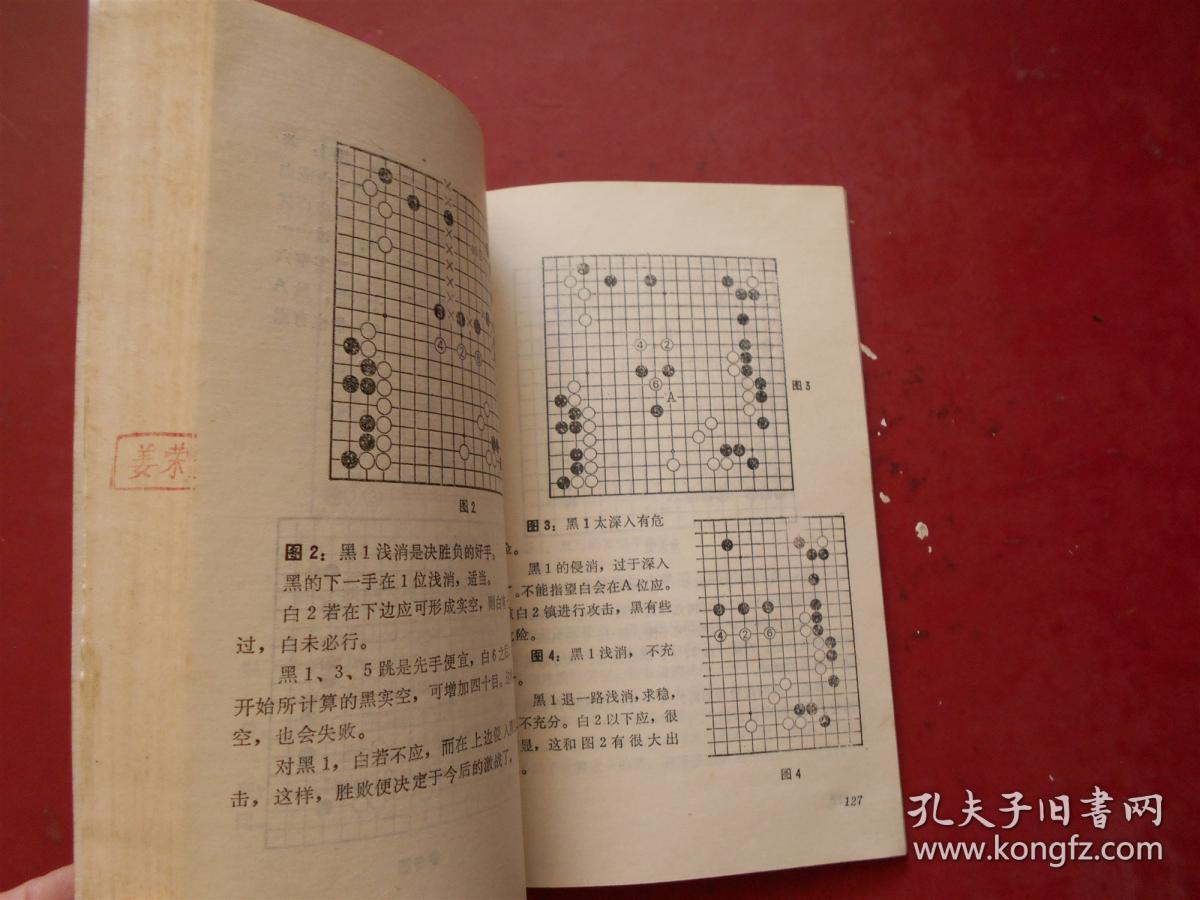 姜荣
图2
图2：黑1浅消是决胜负的好手。
黑的下一手在1位浅消，适当。
白2若在下边应可形成实空，则白
过，白未必行。
黑1、3、5跳是先手便宜，白6之后
开始所计算的黑实空，可增加四十目。
空，也会失败。
对黑1，白若不应，而在上边侵入
击，这样，胜败便决定于今后的激战了，
④
②
④
②
⑥
A
图3
图3：黑1太深入有危
险。
黑1的侵消，过于深入
。不能指望白会在A位应。
白2镇进行攻击，黑有些
险。
图4：黑1浅消，不充
黑1退一路浅消，求稳，
不充分。白2以下应，很
显，这和图2有很大出
④
②
⑥
图4
127
孔夫子旧書网
www.kongfz.com